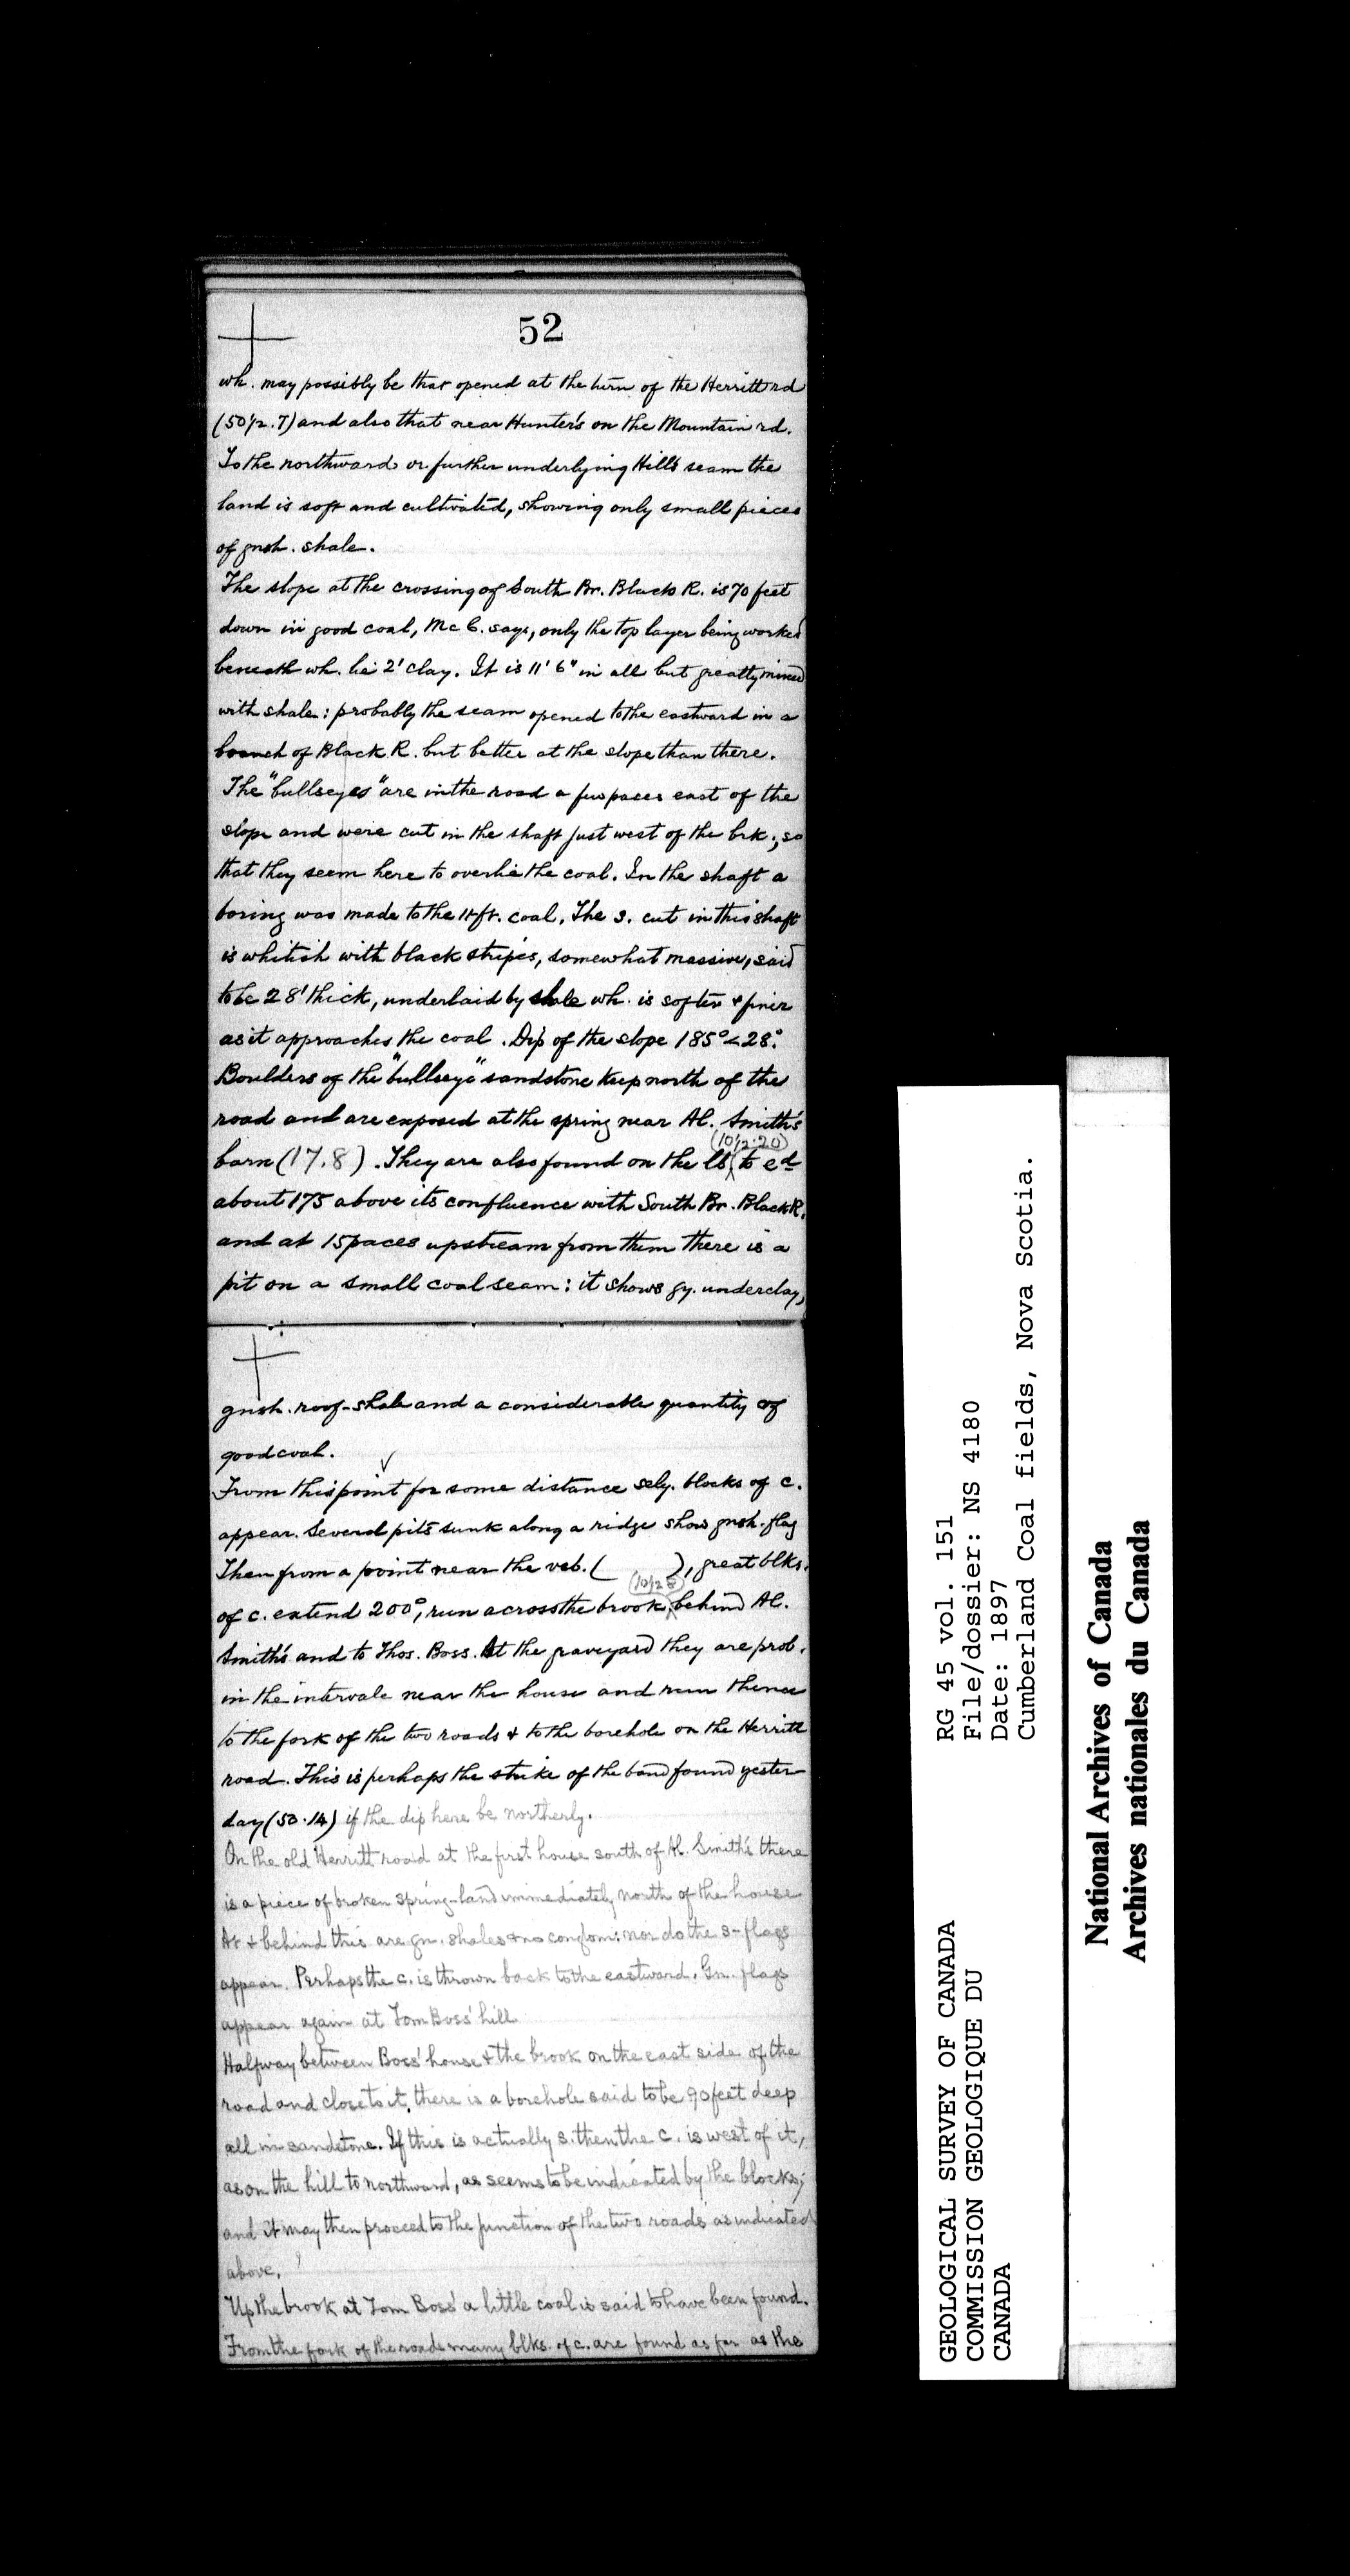 52
wh. may possibly be that opened at the turn of the Herritt rd
(50½.7) and also that near Hunter's on the Mountain rd.
To the northward or further underlying Hill's seam the
land is soft and cultivated, showing only small pieces
of gnsh. shale.
The slope at the crossing of South Br. Black R. is 70 feet
down in good coal, Mc C. says, only the top layer being worked
beneath wh. lie 2' clay. It is 11' 6" in all but greatly mixed
with shale: probably the seam opened to the eastward in a
branch of Black R. but better at the slope than there.
The "bullseyes" are in the road a few paces east of the
slope and were cut in the shaft just west of the brk; so
that they seem here to overlie the coal. In the shaft a
boring was made to the 11-ft. coal. The s. cut in this shaft
is whitish with black stripes, somewhat massive, said
to be 28' thick, underlaid by shale wh. is softer & finer
as it approaches the coal. Dip of the slope 185° < 28°.
Boulders of the "bullseye" sandstone keep north of the
road and are exposed at the spring near Al. Smith's
(10½.20)
barn (17.8). They are also found on the lb to ed
about 175 above its confluence with South Br. Black R.
and at 15 paces upstream from them there is a
pit on a small coal seam: it shows gy. underclay,
gnsh. roof-shale and a considerable quantity of
good coal.
From this point for some distance sely. blocks of c.
appear. Several pits sunk along a ridge show gnsh. flag
Then from a point near the veb. ( ), great blks.
of c. extend 200°, run across the brook behind Al.
Smith's and to Thos. Boss. At the graveyard they are prob.
in the intervale near the house and run thence
to the fork of the two roads & to the borehole on the Herritt
road. This is perhaps the strike of the band found yester-
day (50.14) if the dip here be northerly.
On the old Herritt road at the first house south of Al. Smith's there
is a piece of broken spring-land immediately north of the house
At & behind this are gn. shales & no conglom: nor do the s-flags
appear. Perhaps the c. is thrown back to the eastward. Gn. flags
appear again at Tom Boss' hill
Halfway between Boss' house & the brook on the east side of the
road and close to it, there is a borehole said to be 90 feet deep
all in sandstone. If this is actually s. then the c. is west of it,
as on the hill to northward, as seems to be indicated by the blocks;
and it may then proceed to the junction of the two roads as indicated
above.
Up the brook at Tom Boss' a little coal is said to have been found.
From the fork of the roads many blks. of c. are found as far as the
GEOLOGICAL SURVEY OF CANADA
COMMISSION GEOLOGIQUE DU
CANADA
RG 45 vol. 151
File/dossier: NS 4180
Date: 1897
Cumberland Coal fields, Nova Scotia.
National Archives of Canada
Archives nationales du Canada